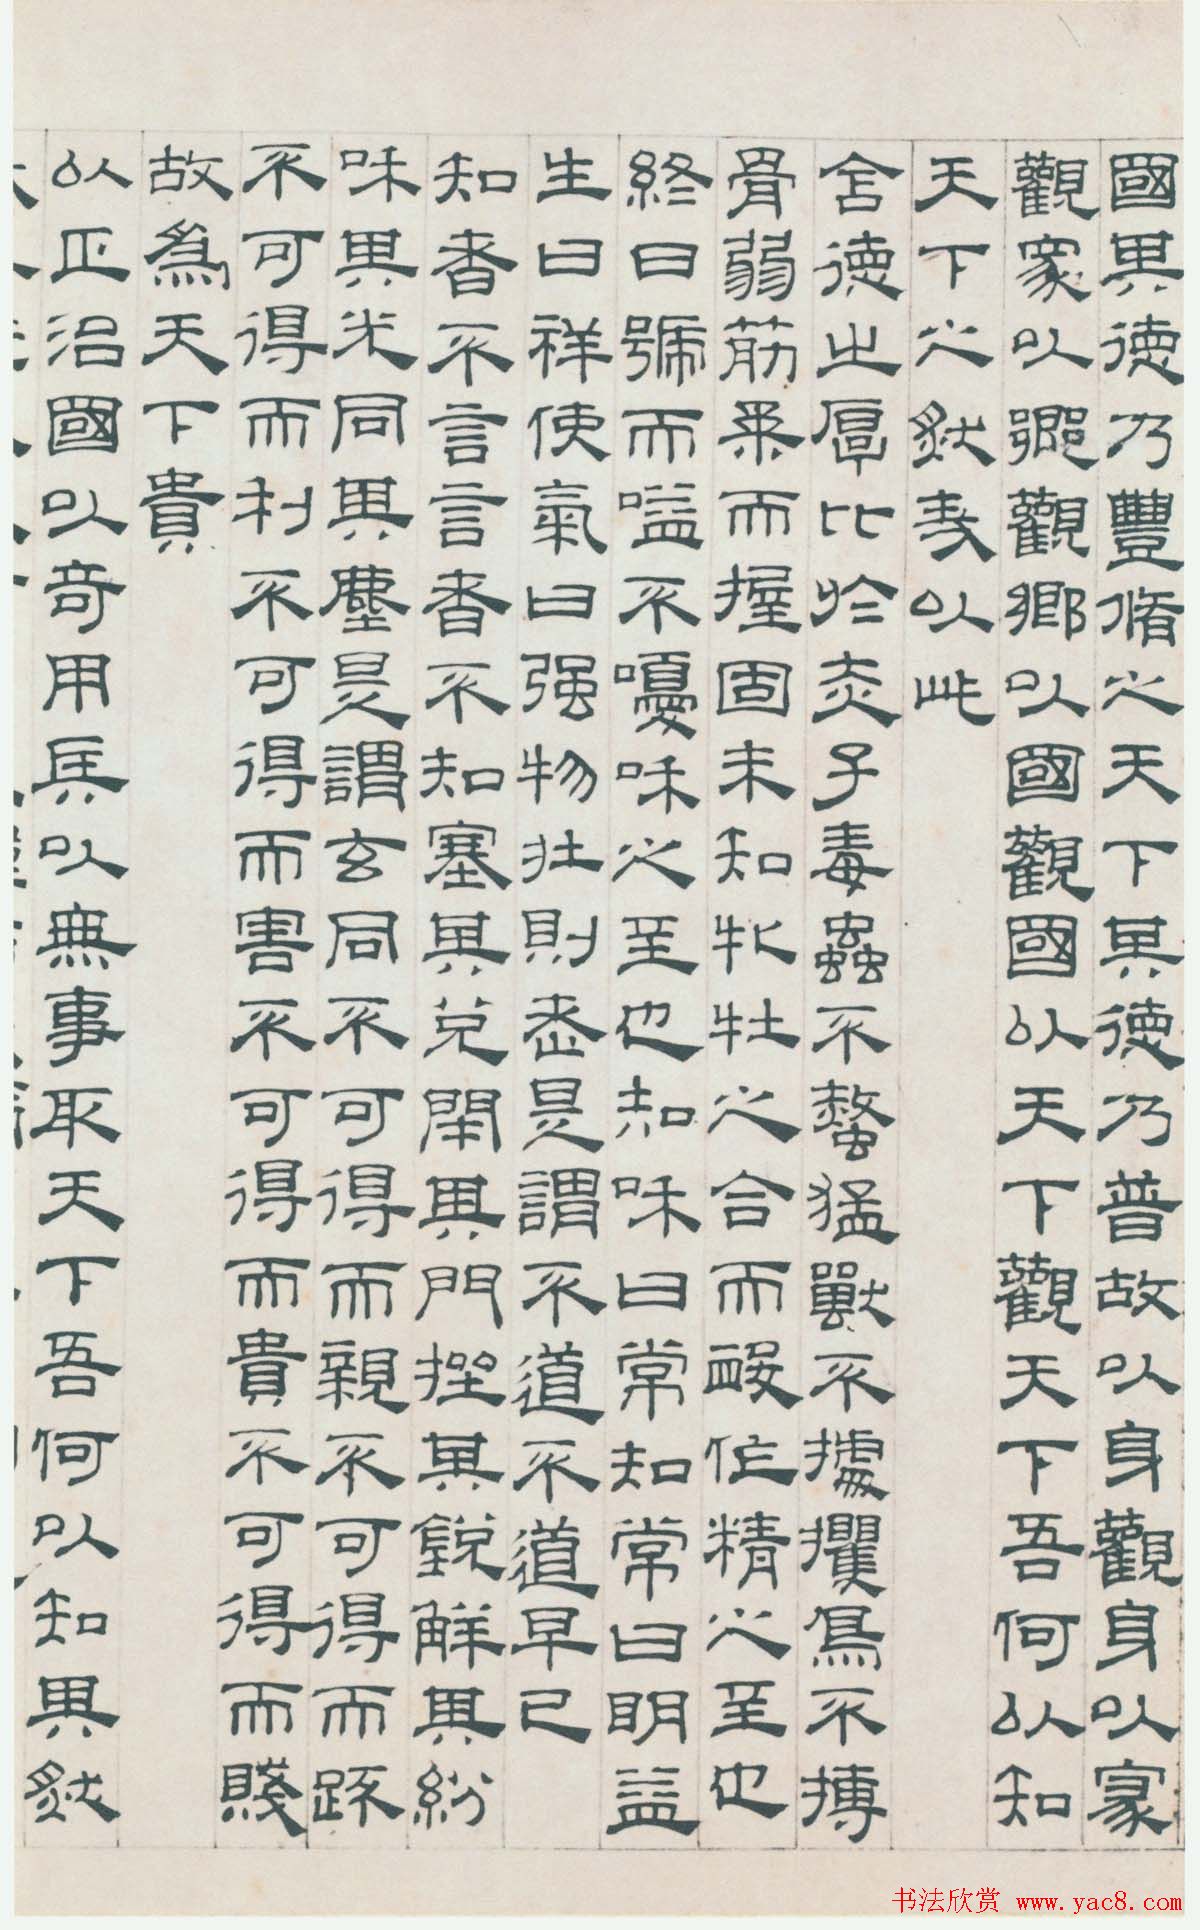 國其德乃豐脩之天下其德乃普故以身觀身以家
觀家以鄉觀鄉以國觀國以天下觀天下吾何以知
天下之然哉以此
含德之厚比於赤子毒蟲不螫猛獸不據攫鳥不搏
骨弱筋柔而握固未知牝牡之合而䘒作精之至也
終日號而嗌不嚘和之至也知和曰常知常曰明益
生曰祥使氣曰强物壯則老是謂不道不道早已
知者不言言者不知塞其兌閉其門挫其銳解其紛
和其光同其塵是謂玄同不可得而親不可得而踈
不可得而利不可得而害不可得而貴不可得而賤
故為天下貴
以正治國以奇用兵以無事取天下吾何以知其然
书法欣赏 www.yac8.com